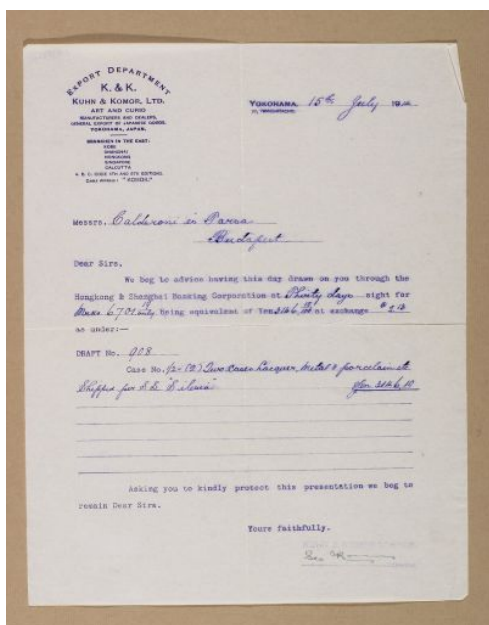 EXPORT DEPARTMENT
K. & K.
KUHN & KOMOR, LTD.
ART AND CURIO
MANUFACTURERS AND DEALERS,
GENERAL EXPORT OF JAPANESE GOODS.
YOKOHAMA, JAPAN.
BRANCHES IN THE EAST:
KOBE
SHANGHAI
HONGKONG
SINGAPORE
CALCUTTA
A. B. C. CODE 4TH AND 5TH EDITIONS.
"KOMOR."
YOKOHAMA, 15th July
Messrs. Calderoni és Társa
Budapest
Dear Sirs.
We beg to advise having this day drawn on you through the
Hongkong & Shanghai Banking Corporation at Thirty days sight for
being equivalent of Yen at exchange
as under:—
DRAFT No. 908
Case No. 1/2- (2) Two cases Lacquer, Metal & porcelain
Shipped per S.S. "Silesia"
Asking you to kindly protect this presentation we beg to
remain Dear Sirs.
Yours faithfully.